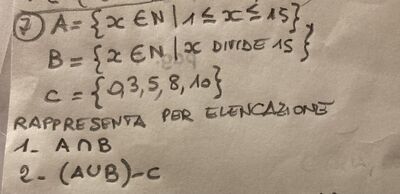 7) A = {x ∈ N | 1 ≤ x ≤ 15}
B = {x ∈ N | x DIVIDE 15}
C = {0,3,5,8,10}
RAPPRESENTA PER ELENCAZIONE
1- A∩B
2- (A∪B)-C